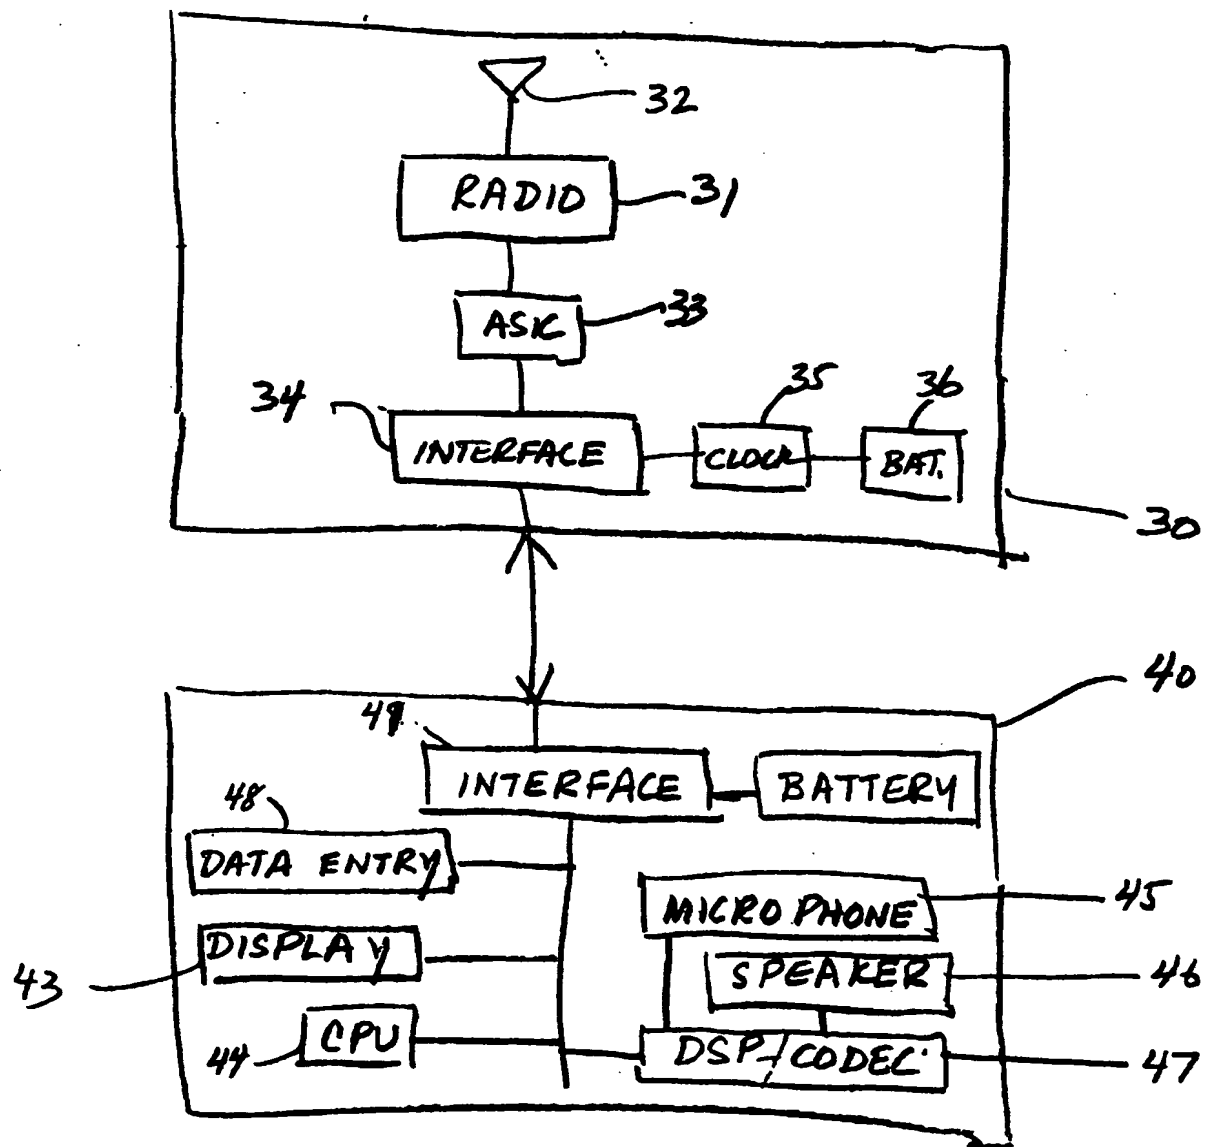 32
RADIO
31
ASIC
33
34
35
36
INTERFACE
CLOCK
BAT.
30
40
49
INTERFACE
BATTERY
48
DATA ENTRY
MICROPHONE
45
DISPLAY
43
SPEAKER
46
CPU
44
DSP/CODEC
47